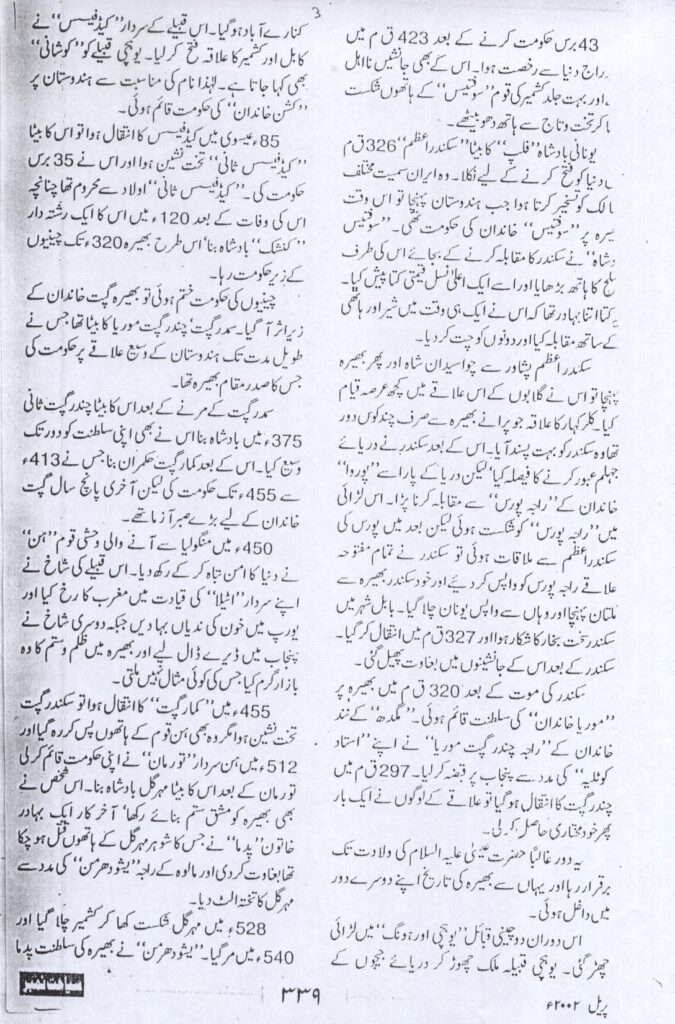 3
43 برس حکومت کرنے کے بعد 423 ق م میں
راج دنیا سے رخصت ہوا۔ اس کے بھی جانشیں نااہل
اور بہت جلد کشمیر کی قوم ”سوفتیس“ کے ہاتھوں شکست
کر تخت و تاج سے ہاتھ دھو بیٹھے۔
یونانی بادشاہ ”فلپ“ کا بیٹا ”سکندر اعظم“ 326 ق م
دنیا کو فتح کرنے کے لیے نکلا۔ وہ ایران سمیت مختلف
الک کو تسخیر کرتا ہوا جب ہندوستان پہنچا تو اس وقت
یرہ پر ”سوفتیس“ خاندان کی حکومت تھی۔ ”سوفتیس
دشاہ“ نے سکندر کا مقابلہ کرنے کے بجائے اس کی طرف
لح کا ہاتھ بڑھایا اور اسے ایک اعلیٰ نسل قیمتی کتا پیش کیا۔
کتا اتنا بہادر تھا کہ اس نے ایک ہی وقت میں شیر اور ہاتھی
کے ساتھ مقابلہ کیا اور دونوں کو چت کر دیا۔
سکندر اعظم پشاور سے چوا سیدان شاہ اور پھر بھیرہ
پہنچا تو اس نے گلابوں کے اس علاقے میں کچھ عرصہ قیام
کیا۔ کلر کہار کا علاقہ جو پرانے بھیرہ سے صرف چند کوس دور
تھا وہ سکندر کو بہت پسند آیا۔ اس کے بعد سکندر نے دریائے
جہلم عبور کرنے کا فیصلہ کیا لیکن دریا کے پار اسے ”پوروا“
خاندان کے ”راجہ پورس“ سے مقابلہ کرنا پڑا۔ اس لڑائی
میں ”راجہ پورس“ کو شکست ہوئی لیکن بعد میں پورس کی
سکندر اعظم سے ملاقات ہوئی تو سکندر نے تمام مفتوحہ
علاقے راجہ پورس کو واپس کر دیئے اور خود سکندر بھیرہ سے
ملتان پہنچا اور وہاں سے واپس یونان چلا گیا۔ بابل شہر میں
سکندر سخت بخار کا شکار ہوا اور 327 ق م میں انتقال کر گیا۔
سکندر کے بعد اس کے جانشینوں میں بغاوت پھیل گئی۔
سکندر کی موت کے بعد 320 ق م میں بھیرہ پر
”موریا خاندان“ کی سلطنت قائم ہوئی۔ ”مگدھ“ کے نند
خاندان کے ”راجہ چندر گپت موریا“ نے اپنے ”استاد
کوٹلیہ“ کی مدد سے پنجاب پر قبضہ کر لیا۔ 297 ق م میں
چندر گپت کا انتقال ہو گیا تو علاقے کے لوگوں نے ایک بار
پھر خود مختاری حاصل کر لی۔
یہ دور غالباً حضرت عیسیٰ علیہ السلام کی ولادت تک
برقرار رہا اور یہاں سے بھیرہ کی تاریخ اپنے دوسرے دور
میں داخل ہوئی۔
اس دوران دو چینی قبائل ”یوہچی اور ہونگ“ میں لڑائی
چھڑ گئی۔ یوہچی قبیلہ ملک چھوڑ کر دریائے جیحوں کے
کنارے آباد ہو گیا۔ اس قبیلے کے سردار ”کیڈفیسس“ نے
کابل اور کشمیر کا علاقہ فتح کر لیا۔ یوہچی قبیلے کو ”کوشانی“
بھی کہا جاتا ہے۔ لہٰذا نام کی مناسبت سے ہندوستان پر
”کشن خاندان“ کی حکومت قائم ہوئی۔
85ء عیسوی میں کیڈفیسس کا انتقال ہوا تو اس کا بیٹا
”کیڈفیسس ثانی“ تخت نشین ہوا اور اس نے 35 برس
حکومت کی۔ ”کیڈفیسس ثانی“ اولاد سے محروم تھا چنانچہ
اس کی وفات کے بعد 120ء میں اس کا ایک رشتہ دار
”کنشک“ بادشاہ بنا‘ اس طرح بھیرہ 320ء تک چینیوں
کے زیر حکومت رہا۔
چینیوں کی حکومت ختم ہوئی تو بھیرہ گپت خاندان کے
زیر اثر آ گیا۔ سمدر گپت‘ چندر گپت موریا کا بیٹا تھا جس نے
طویل مدت تک ہندوستان کے وسیع علاقے پر حکومت کی
جس کا صدر مقام بھیرہ تھا۔
سمدر گپت کے مرنے کے بعد اس کا بیٹا چندر گپت ثانی
375ء میں بادشاہ بنا اس نے بھی اپنی سلطنت کو دور تک
وسیع کیا۔ اس کے بعد کمار گپت حکمران بنا جس نے 413ء
سے 455ء تک حکومت کی لیکن آخری پانچ سال گپت
خاندان کے لیے بڑے صبر آزما تھے۔
450ء میں منگولیا سے آنے والی وحشی قوم ”ہن“
نے دنیا کا امن تباہ کر کے رکھ دیا۔ اس قبیلے کی شاخ نے
اپنے سردار ”اٹیلا“ کی قیادت میں مغرب کا رخ کیا اور
یورپ میں خون کی ندیاں بہا دیں جبکہ دوسری شاخ نے
پنجاب میں ڈیرے ڈال لیے اور بھیرہ میں ظلم و ستم کا وہ
بازار گرم کیا جس کی کوئی مثال نہیں ملتی۔
455ء میں ”کمار گپت“ کا انتقال ہوا تو سکندر گپت
تخت نشین ہوا مگر وہ بھی ہن قوم کے ہاتھوں پس کر رہ گیا اور
512ء میں ہن سردار ”تورمان“ نے اپنی حکومت قائم کر لی
تورمان کے بعد اس کا بیٹا مہر گل بادشاہ بنا۔ اس شخص نے
بھی بھیرہ کو مشق ستم بنائے رکھا‘ آخر کار ایک بہادر
خاتون ”پدما“ نے جس کا شوہر مہر گل کے ہاتھوں قتل ہو چکا
تھا بغاوت کر دی اور مالوہ کے راجہ ”یشودھرمن“ کی مدد سے
مہر گل کا تختہ الٹ دیا۔
528ء میں مہر گل شکست کھا کر کشمیر چلا گیا اور
540ء میں مر گیا۔ ”یشودھرمن“ نے بھیرہ کی سلطنت پدما
پریل ۲۰۰۲ء
۳۳۹